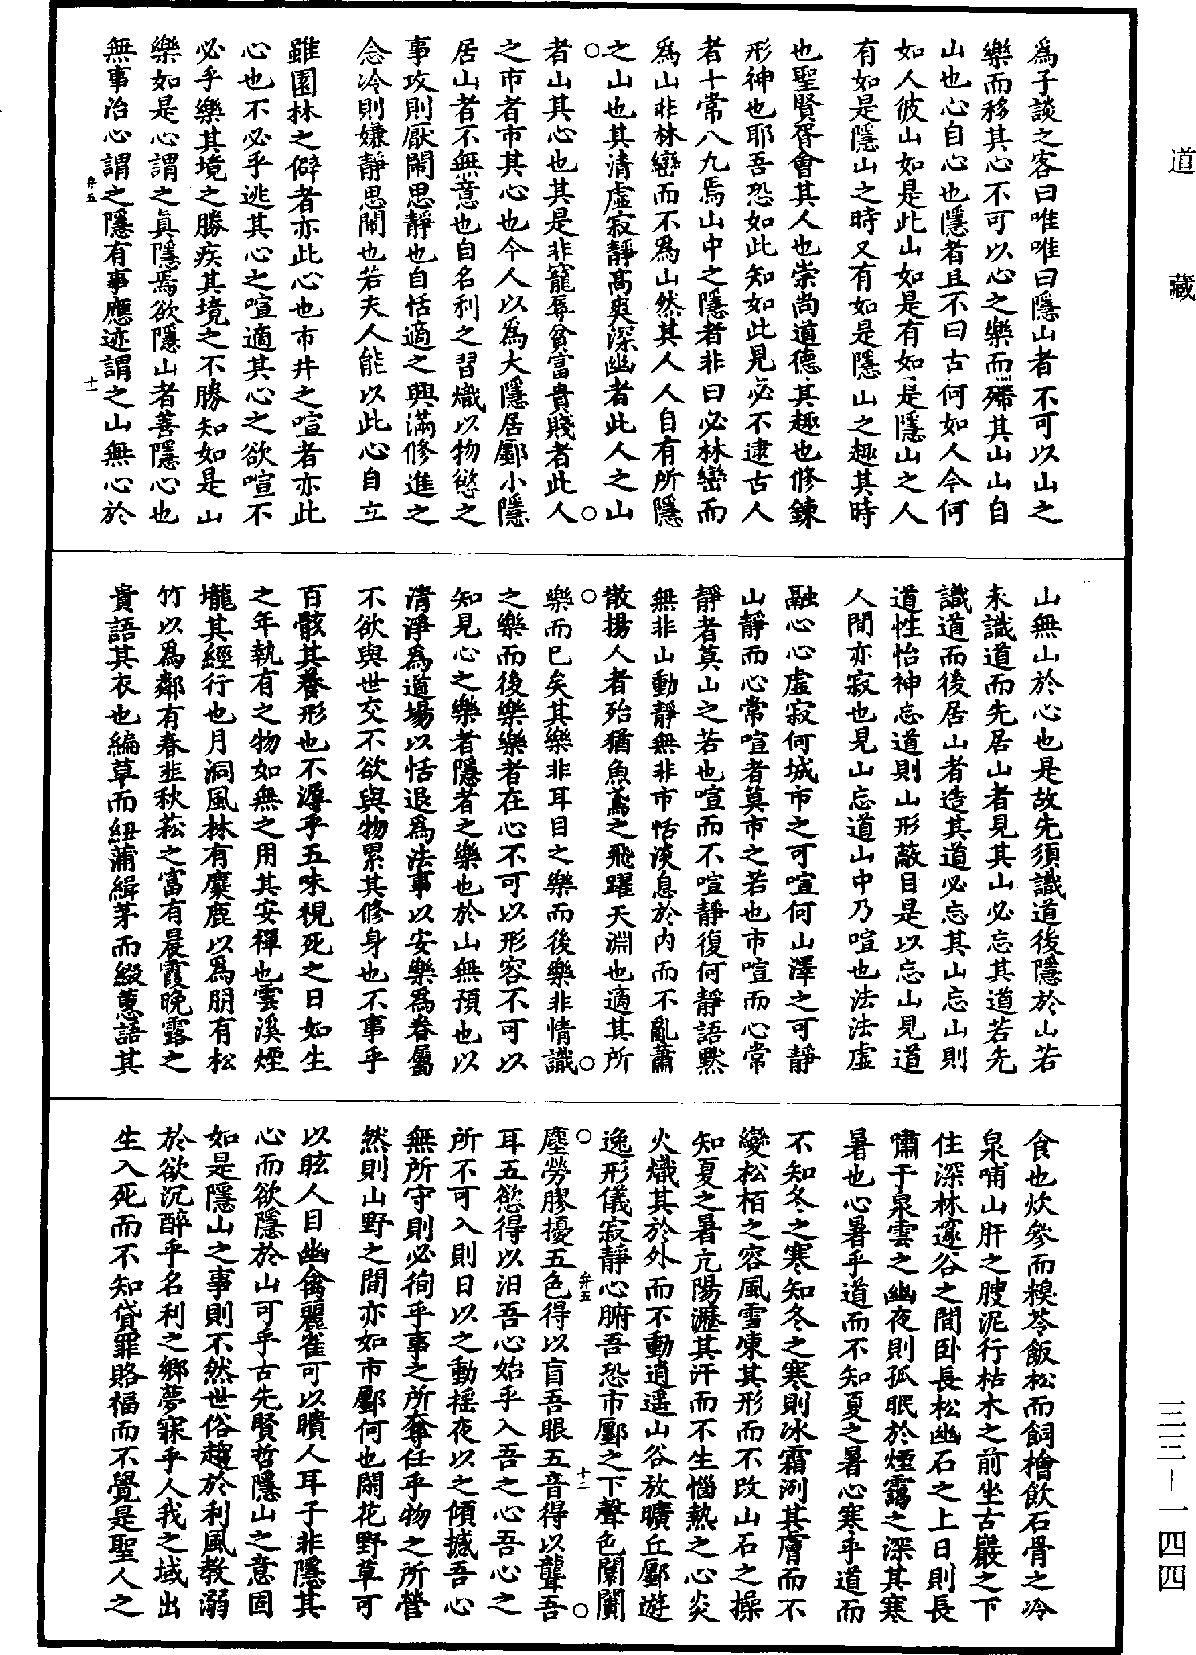 道藏
為子談之客曰唯唯曰隱山者不可以山之
樂而移其心不可以心之樂而殢其山山自
山也心自心也隱者且不曰古何如人今何
如人彼山如是此山如是有如是隱山之人
有如是隱山之時又有如是隱山之趣其時
也聖賢胥會其人也崇尚道德其趣也修鍊
形神也耶吾恐如此知如此見必不逮古人
者十常八九焉山中之隱者非曰必林巒而
為山非林巒而不為山然其人人自有所隱
之山也其清虛寂靜高爽深幽者此人之山
者山其心也其是非寵辱貧富貴賤者此人
之市者市其心也今人以為大隱居鄽小隱
居山者不無意也自名利之習熾以物慾之
事攻則厭鬧思靜也自恬適之興滿修進之
念冷則嫌靜思鬧也若夫人能以此心自立
雖園林之僻者亦此心也市井之喧者亦此
心也不必乎逃其心之喧適其心之欲喧不
必乎樂其境之勝疾其境之不勝知如是山
樂如是心謂之真隱焉欲隱山者善隱心也
無事治心謂之隱有事應迹謂之山無心於
弁五
十一
山無山於心也是故先須識道後隱於山若
未識道而先居山者見其山必忘其道若先
識道而後居山者造其道必忘其山忘山則
道性怡神忘道則山形蔽目是以忘山見道
人間亦寂也見山忘道山中乃喧也法法虛
融心心虛寂何城市之可喧何山澤之可靜
山靜而心常喧者莫市之若也市喧而心常
靜者莫山之若也喧而不喧靜復何靜語黙
無非山動靜無非市恬淡息於內而不亂蕭
散揚人者殆猶魚鳶之飛躍天淵也適其所
樂而已矣其樂非耳目之樂而後樂非情識
之樂而後樂樂者在心不可以形容不可以
知見心之樂者隱者之樂也於山無預也以
清淨為道場以恬退為法事以安樂為眷屬
不欲與世交不欲與物累其修身也不事乎
百骸其養形也不滯乎五味視死之日如生
之年執有之物如無之用其安禪也雲溪煙
壠其經行也月洞風林有麋鹿以為朋有松
竹以為鄰有春韭秋菘之富有晨霞晚露之
貴語其衣也編草而紐蒲緝茅而綴蕙語其
食也炊參而糗苓飯松而飼檜飲石骨之冷
泉哺山肝之膄泥行枯木之前坐古巖之下
住深林邃谷之間臥長松幽石之上日則長
嘯于泉雲之幽夜則孤眠於煙靄之深其寒
暑也心暑乎道而不知夏之暑心寒乎道而
不知冬之寒知冬之寒則冰霜冽其膚而不
變松栢之容風雪凍其形而不改山石之操
知夏之暑亢陽瀝其汗而不生惱熱之心炎
火熾其於外而不動逍遙山谷放曠丘鄽遊
逸形儀寂靜心腑吾恐市鄽之下聲色闤闠
塵勞膠擾五色得以盲吾眼五音得以聾吾
弁五
十二
耳五慾得以汨吾心始乎入吾之心吾心之
所不可入則日以之動搖夜以之傾撼吾心
無所守則必徇乎事之所奪任乎物之所營
然則山野之間亦如市鄽何也閑花野草可
以眩人目幽禽麗雀可以聵人耳子非隱其
心而欲隱於山可乎古先賢哲隱山之意固
如是隱山之事則不然世俗趨於利風教溺
於欲沉醉乎名利之鄉夢寐乎人我之域出
生入死而不知貸罪賂福而不覺是聖人之
三三－一四四